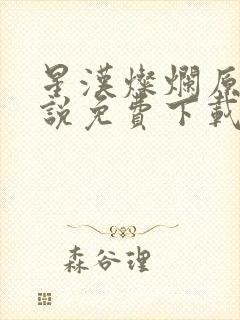 星漢燦爛原
說免費下載
森谷理